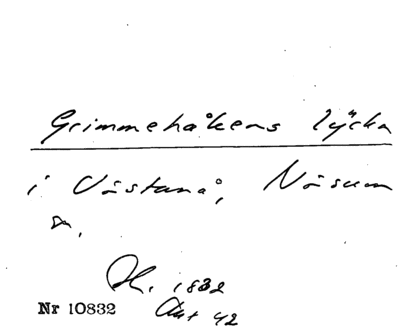 Grimmehåkens lycka
i Västanå, Näsum
sn.
Sk. 1832
Akt 42
Nr 10832